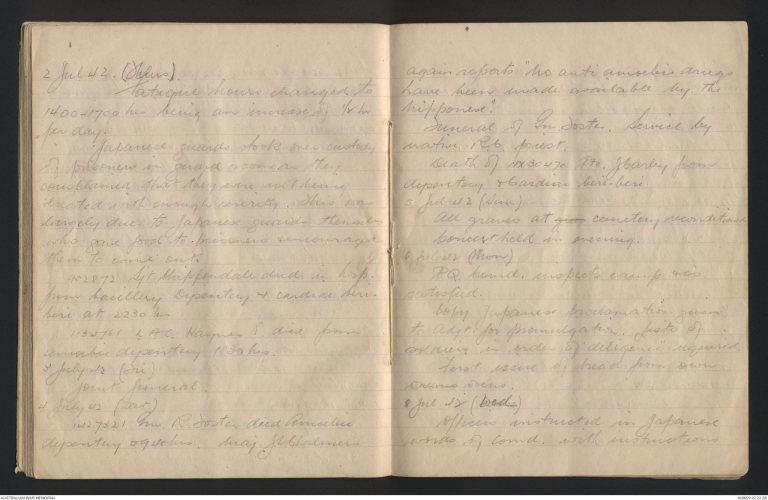 2 Jul 42. (Thurs).
Fatigue hours changed to
1400-1700 hrs being an increase of ½ hr
per day.
Japanese guards took over custody
of prisoners in guard room as they
complained that they were not being
treated with enough severity. This was
largely due to Japanese guards themselves
who gave food to prisoners & encouraged
them to come out.
902872 Sgt Whippendale died in hosp.
from bacillary dysentery & cardiac beri-
beri at 2230 hrs
L.A.C. Haynes S. died from
amoebic dysentery 1830 hrs.
3 July 42 (Fri)
Joint funeral.
4 July 42 (Sat)
Gnr. R. Foster died Amoebic
dysentery 0940 hrs. Maj.
again reports "no anti amoebic drugs
have been made available by the
Nipponese".
Funeral of Gnr Foster. Service by
native R.C. priest.
Death of Pte. J Barley from
dysentery & Cardiac beri-beri
5 Jul 42 (Sun)
All graves at cemetery reconditioned
Concert held in evening.
6 Jul 42 (Mon)
HQ Comd. inspects camp & is
satisfied.
Copy Japanese Proclamation given
to Adjt. for promulgation. Lists of
soldiers in order of "diligence" required.
First issue of bread from own
ovens.
8 Jul 42 (Wed)
Officers instructed in Japanese
words of Comd. with instructions
AUSTRALIAN WAR MEMORIAL